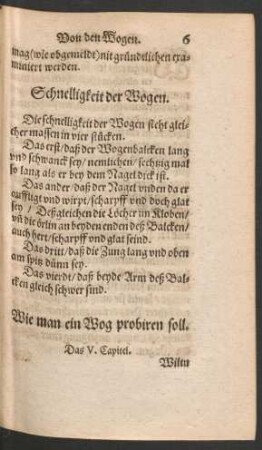 Von den Wogen. 6
mag (wie obgemeldt) nit gründtlichen exa-
miniert werden.
Schnelligkeit der Wogen.
Die schnelligkeit der Wogen steht glei-
cher massen in vier stücken.
Das erst / daß der Wogenbalcken lang
vnd schwanck sey / nemlichen / sechtzig mal
so lang als er bey dem Nagel dick ist.
Das ander / daß der Nagel vnden da er
auffligt vnd wirpt / scharpff vnd doch glat
sey / Deßgleichen die Löcher im Kloben /
vñ die örlin an beyden enden deß Balcken /
auch hert / scharpff vnd glat seind.
Das dritt / daß die Zung lang vnd oben
am spitz dünn sey.
Das vierdt / daß beyde Arm deß Bal-
cken gleich schwer sind.
Wie man ein Wog probiren soll.
Das V. Capitel.